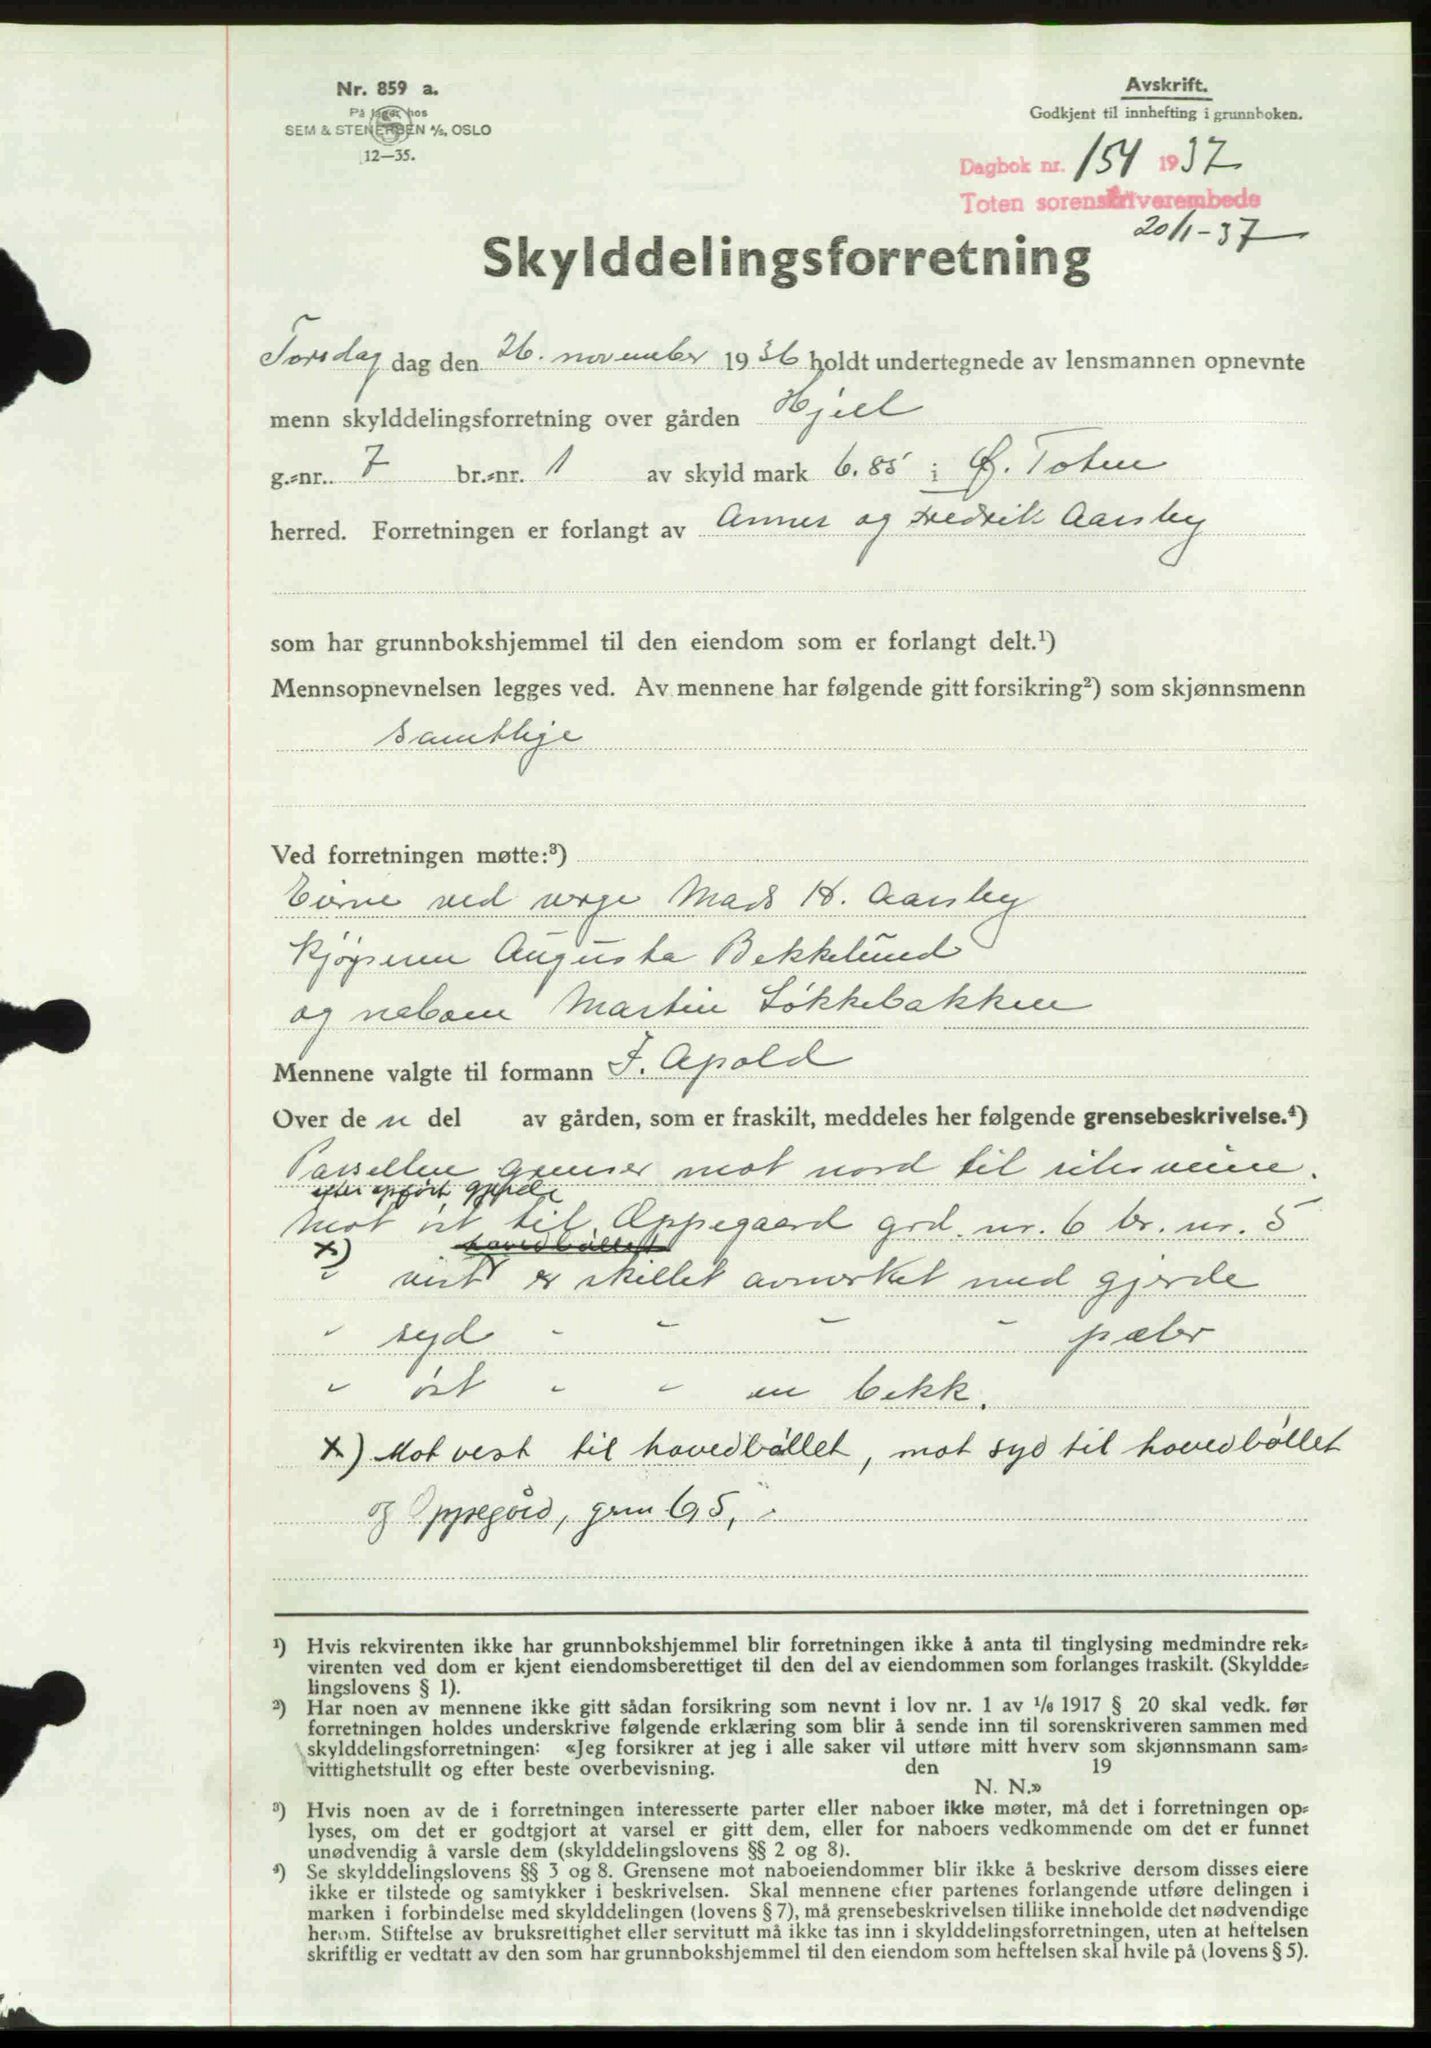 Nr. 859 a.
På lager hos
SEM & STENERSEN A/S, OSLO
12—35.
Avskrift.
Godkjent til innhefting i grunnboken.
Dagbok nr. 154 1937
Toten sorenskriverembede
20/1-37
Skylddelingsforretning
Torsdag dag den 26. november 1936 holdt undertegnede av lensmannen opnevnte
menn skylddelingsforretning over gården Hjell
g.=nr. 7 br.=nr. 1 av skyld mark 6.85 i Ø. Toten
herred. Forretningen er forlangt av Anner og Fredrik Aarsby
som har grunnbokshjemmel til den eiendom som er forlangt delt.¹)
Mennsopnevnelsen legges ved. Av mennene har følgende gitt forsikring²) som skjønnsmenn
samtlige
Ved forretningen møtte:³)
Eierne ved verge Mads H. Aarsby
Kjøperen Augusta Bekkelund
og naboen Martin Løkkebakken
Mennene valgte til formann J. Apold
Over de n del av gården, som er fraskilt, meddeles her følgende grensebeskrivelse.⁴)
Parsellen grenser mot nord til riksveien.
efter opført gjerde
Mot øst til Oppegaard grd. nr. 6 br. nr. 5
x) hovedbøllet
" vest er skillet avmerket med gjerde
" syd " " " " pæler
" øst " " en bekk.
x) Mot vest til hovedbøllet, mot syd til hovedbøllet
og Oppegård, grnr 6,5,
¹) Hvis rekvirenten ikke har grunnbokshjemmel blir forretningen ikke å anta til tinglysing medmindre rek=
virenten ved dom er kjent eiendomsberettiget til den del av eiendommen som forlanges fraskilt. (Skyldde=
lingslovens § 1).
²) Har noen av mennene ikke gitt sådan forsikring som nevnt i lov nr. 1 av 1/6 1917 § 20 skal vedk. før
forretningen holdes underskrive følgende erklæring som blir å sende inn til sorenskriveren sammen med
skylddelingsforretningen: «Jeg forsikrer at jeg i alle saker vil utføre mitt hverv som skjønnsmann sam=
vittighetsfullt og efter beste overbevisning. den 19
N. N.»
³) Hvis noen av de i forretningen interesserte parter eller naboer ikke møter, må det i forretningen op=
lyses, om det er godtgjort at varsel er gitt dem, eller for naboers vedkommende om det er funnet
unødvendig å varsle dem (skylddelingslovens §§ 2 og 8).
⁴) Se skylddelingslovens §§ 3 og 8. Grensene mot naboeiendommer blir ikke å beskrive dersom disses eiere
ikke er tilstede og samtykker i beskrivelsen. Skal mennene efter partenes forlangende utføre delingen i
marken i forbindelse med skylddelingen (lovens § 7), må grensebeskrivelsen tillike inneholde det nødvendige
herom. Stiftelse av bruksrettighet eller servitutt må ikke tas inn i skylddelingsforretningen, uten at heftelsen
skriftlig er vedtatt av den som har grunnbokshjemmel til den eiendom som heftelsen skal hvile på (lovens § 5).